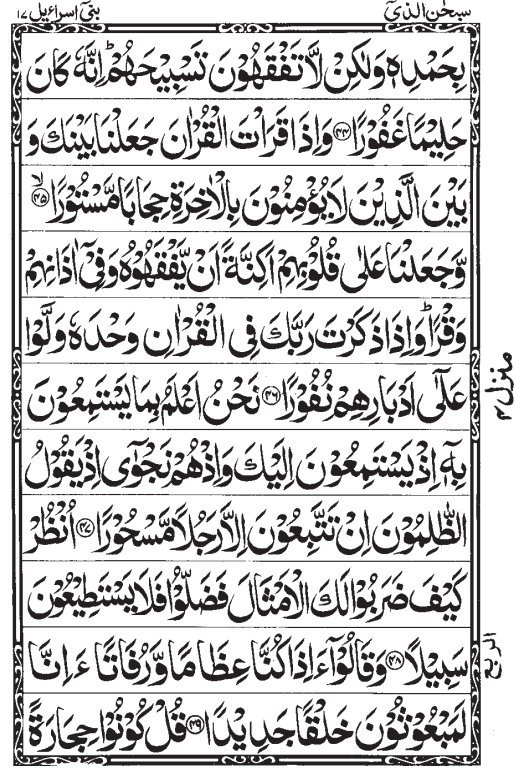 سبحٰن الذیٓ ۱۵ بنیٓ اسرآءیل ۱۷
بِحَمْدِهٖ وَلٰكِنْ لَّا تَفْقَهُوْنَ تَسْبِيْحَهُمْ ؕ اِنَّهٗ كَانَ
حَلِيْمًا غَفُوْرًا ﴿۴۴﴾ وَاِذَا قَرَاْتَ الْقُرْاٰنَ جَعَلْنَا بَيْنَكَ وَ
بَيْنَ الَّذِيْنَ لَا يُؤْمِنُوْنَ بِالْاٰخِرَةِ حِجَابًا مَّسْتُوْرًا ﴿۴۵﴾ۙ
وَّجَعَلْنَا عَلٰى قُلُوْبِهِمْ اَكِنَّةً اَنْ يَّفْقَهُوْهُ وَفِيْۤ اٰذَانِهِمْ
وَقْرًا ؕ وَاِذَا ذَكَرْتَ رَبَّكَ فِي الْقُرْاٰنِ وَحْدَهٗ وَلَّوْا
عَلٰۤى اَدْبَارِهِمْ نُفُوْرًا ﴿۴۶﴾ نَحْنُ اَعْلَمُ بِمَا يَسْتَمِعُوْنَ
بِهٖۤ اِذْ يَسْتَمِعُوْنَ اِلَيْكَ وَاِذْ هُمْ نَجْوٰۤى اِذْ يَقُوْلُ
الظّٰلِمُوْنَ اِنْ تَتَّبِعُوْنَ اِلَّا رَجُلًا مَّسْحُوْرًا ﴿۴۷﴾ اُنْظُرْ
كَيْفَ ضَرَبُوْا لَكَ الْاَمْثَالَ فَضَلُّوْا فَلَا يَسْتَطِيْعُوْنَ
سَبِيْلًا ﴿۴۸﴾ وَقَالُوْۤا ءَاِذَا كُنَّا عِظَامًا وَّرُفَاتًا ءَاِنَّا
لَمَبْعُوْثُوْنَ خَلْقًا جَدِيْدًا ﴿۴۹﴾ قُلْ كُوْنُوْا حِجَارَةً
منزل ۴
الربع